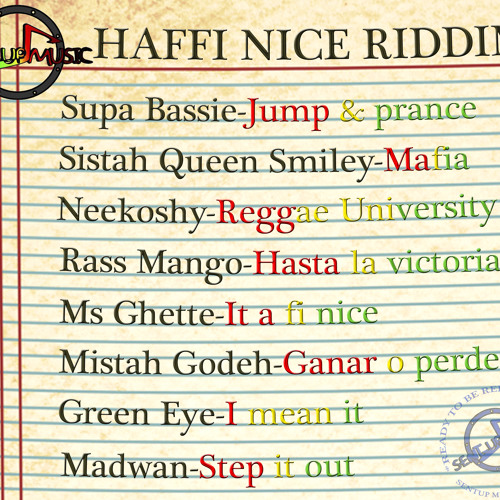 HAFFI NICE RIDDIM
Supa Bassie-Jump & prance
Sistah Queen Smiley-Mafia
Neekoshy-Reggae University
Rass Mango-Hasta la victoria
Ms Ghette-It a fi nice
Mistah Godeh-Ganar o perde
Green Eye-I mean it
Madwan-Step it out
MUSIC
READY TO BE